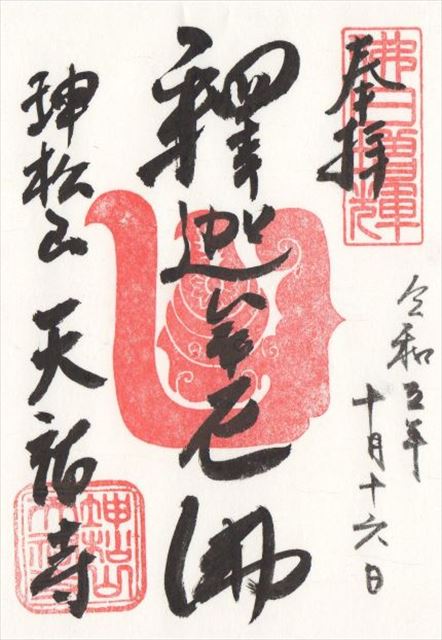 佛日增輝
奉拝
令和五年
十月十六日
釋迦牟尼佛
坤松山 天祐寺